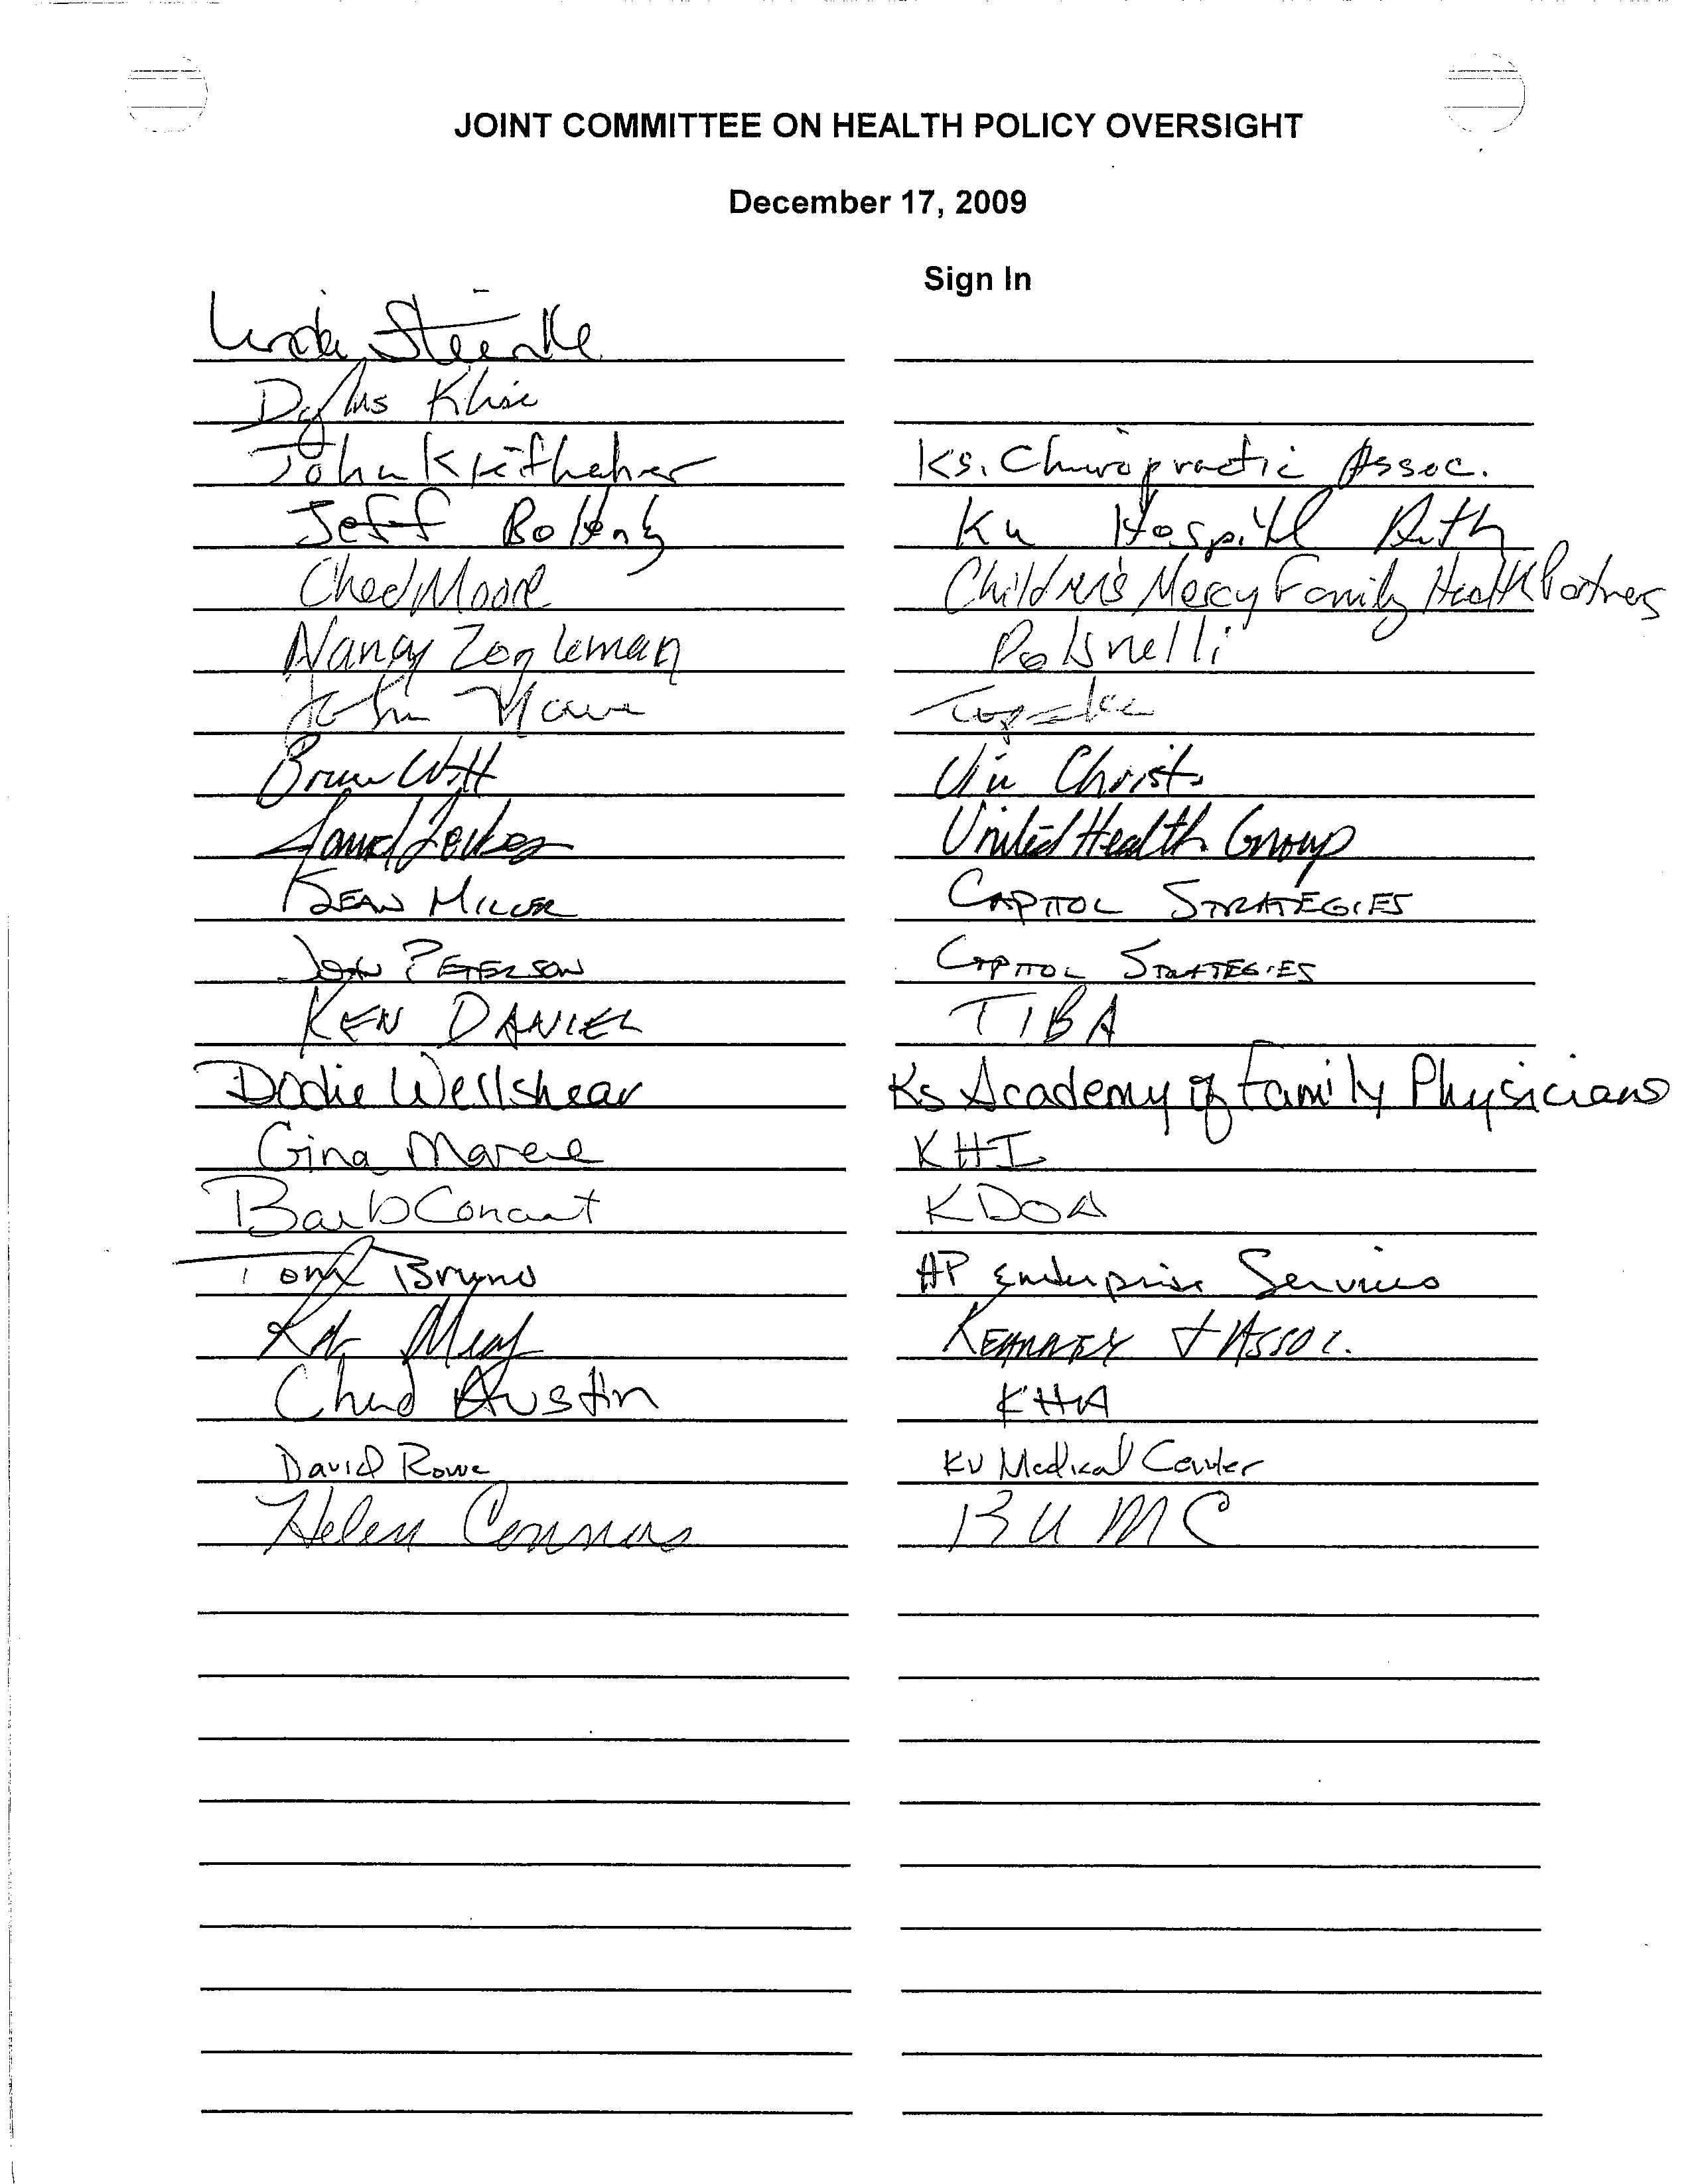 JOINT COMMITTEE ON HEALTH POLICY OVERSIGHT
December 17, 2009
Sign In
Linda
John Ks. Chiropractic Assoc.
Jeff Ku Hospital Auth
Chad Moore Children's Mercy Family Health Partners
Nancy Zogleman Polsinelli
John Topeka
Via Christi
United Health Group
SEAN MILLER CAPITOL STRATEGIES
PETERSON CAPITOL STRATEGIES
KEN DANIEL TIBA
Dodie Wellshear Ks Academy of Family Physicians
Gina KHI
Barb Conant KDOA
Tom Bruno HP Enterprise Services
KEARNEY + ASSOC.
Chad Austin KHA
David Rowe KU Medical Center
Helen Connors KUMC